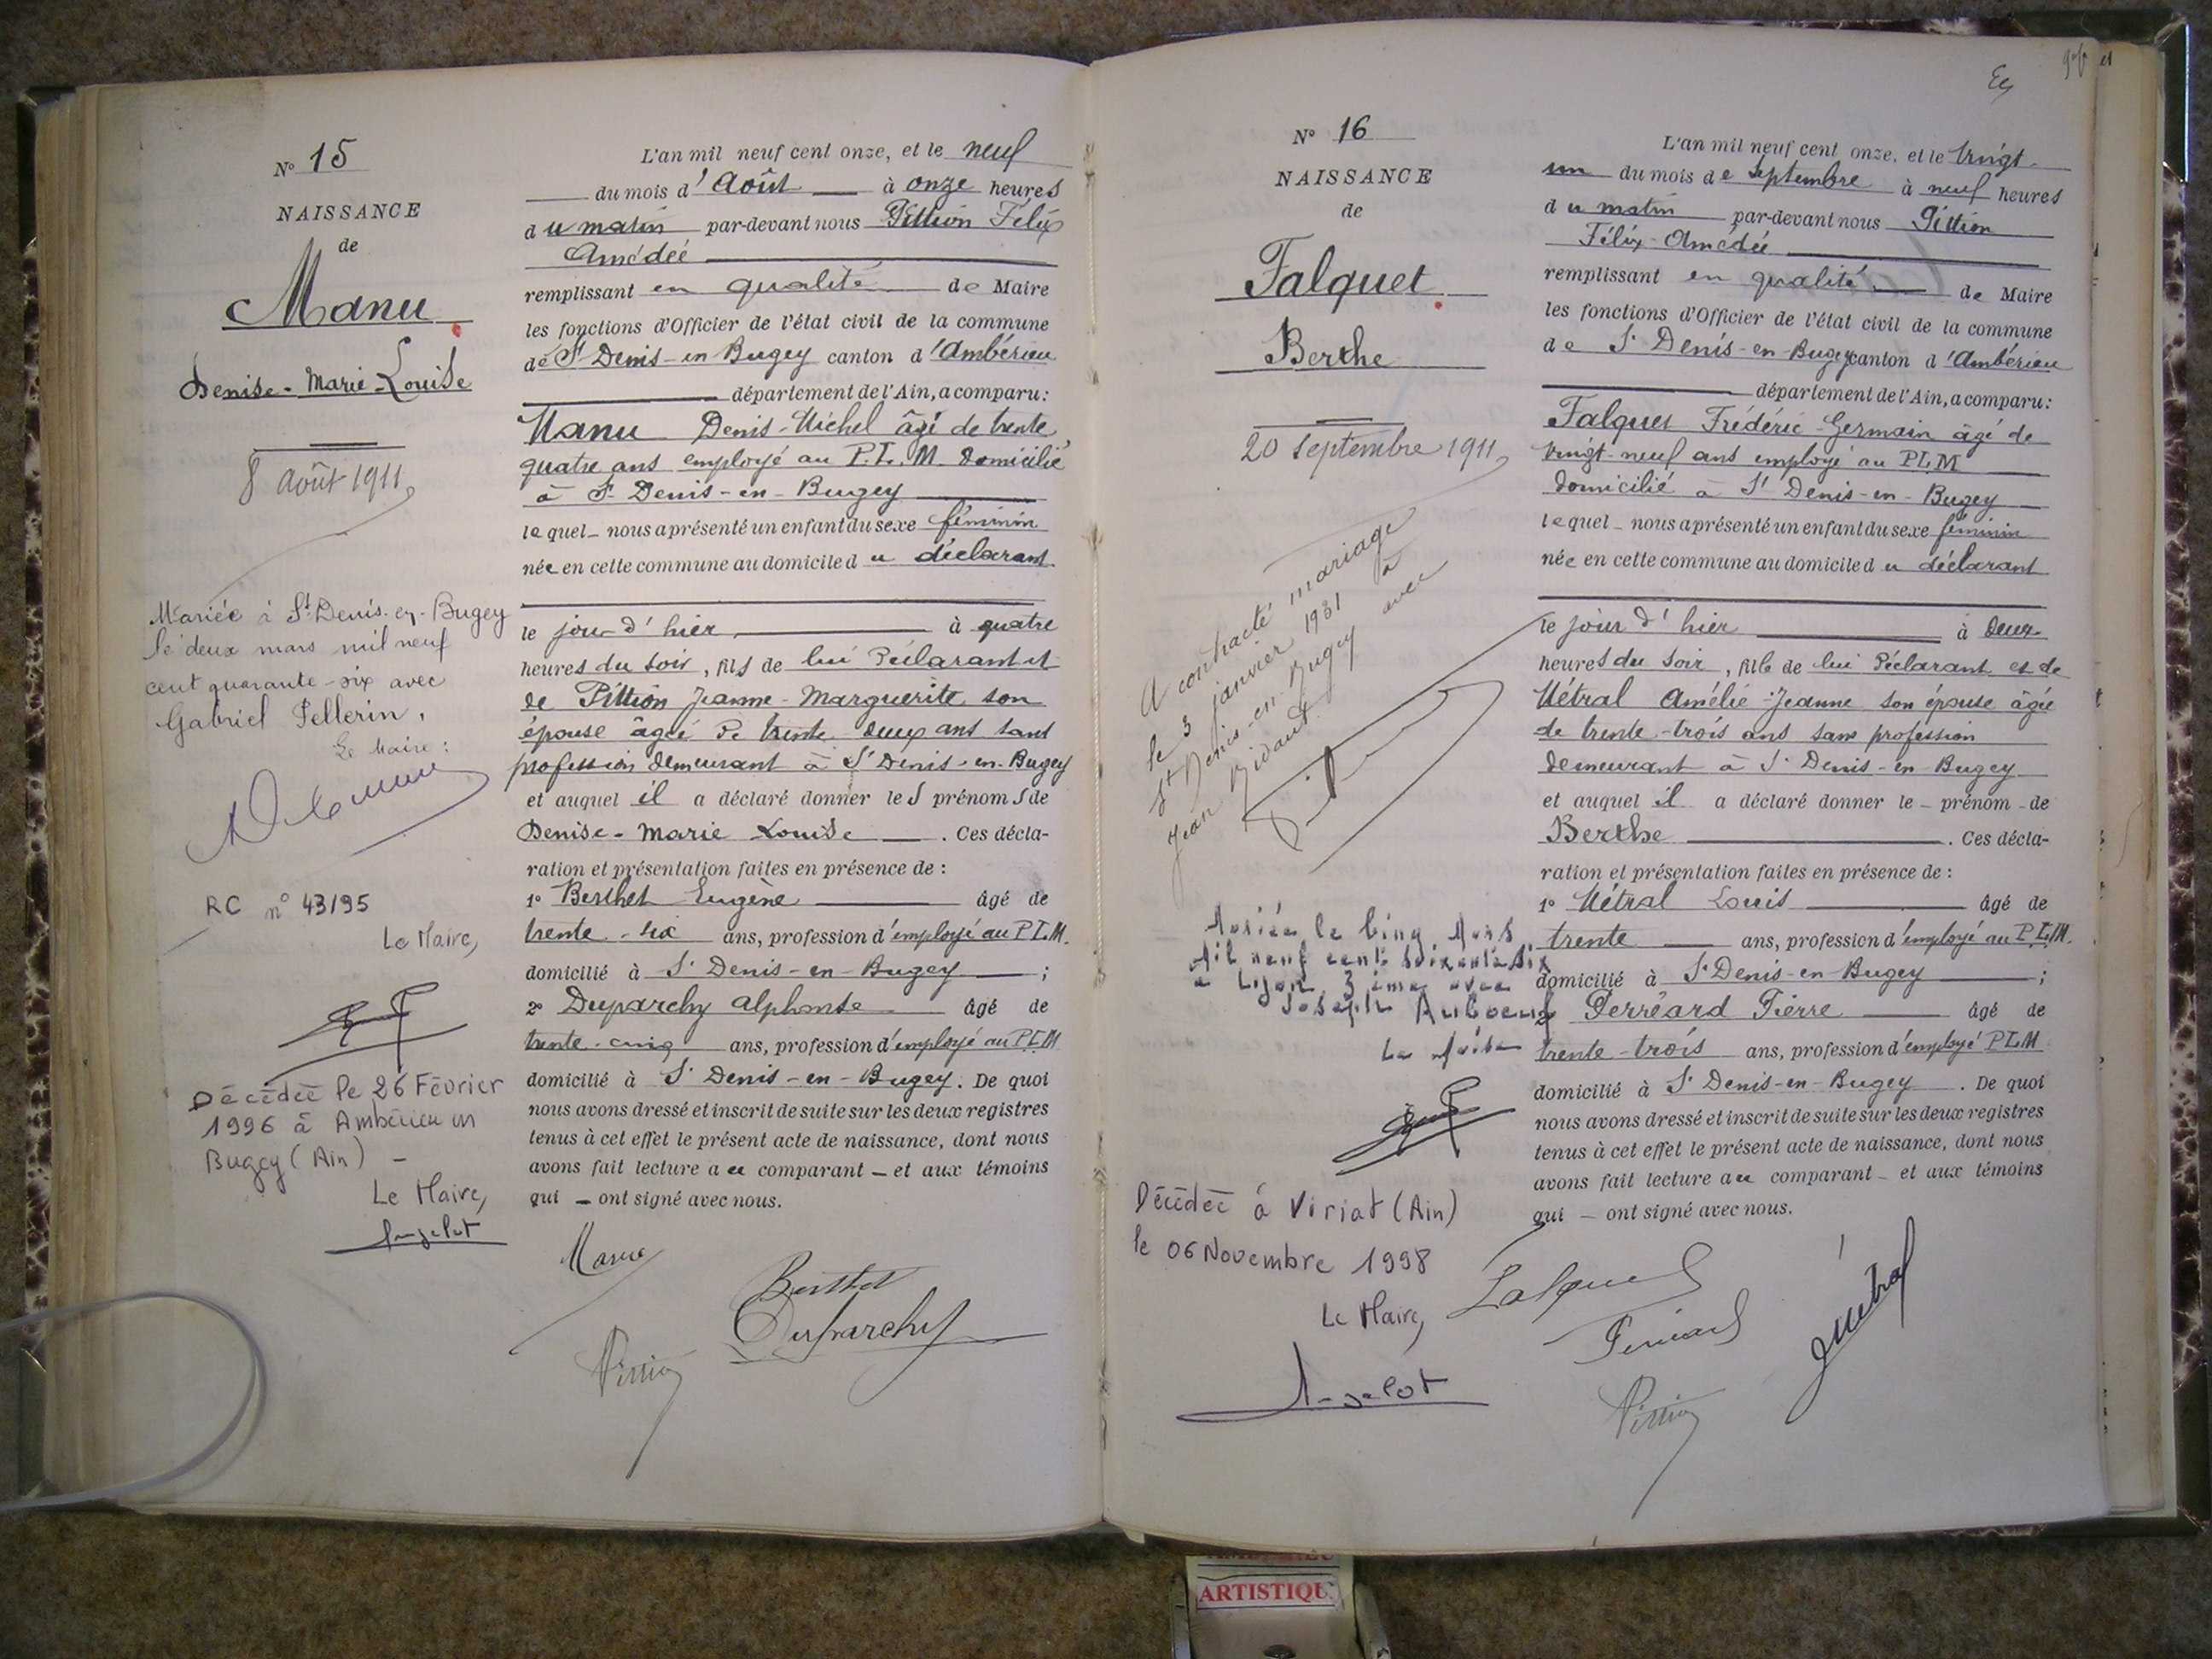 N° 15
NAISSANCE
de
Manu
Denise-Marie-Louise
8 Août 1911
Mariée à St Denis-en-Bugey
le deux mars mil neuf
cent quarante-six avec
Gabriel Pellerin,
Le Maire :
RC n° 43/95
Le Maire,
Décédée le 26 Février
1996 à Ambérieu en
Bugey (Ain) -
Le Maire,
L'an mil neuf cent onze, et le neuf
du mois d'Août à onze heures
du matin par-devant nous Pittion Félix
Amédée
remplissant en qualité de Maire
les fonctions d'Officier de l'état civil de la commune
de St Denis-en-Bugey canton d'Ambérieu
département de l'Ain, a comparu :
Manu Denis-Michel âgé de trente
quatre ans employé au P.L.M. domicilié
à St Denis-en-Bugey
lequel nous a présenté un enfant du sexe féminin
née en cette commune au domicile du déclarant
le jour d'hier à quatre
heures du soir, fils de lui déclarant et
de Pittion Jeanne-Marguerite son
épouse âgée de trente deux ans sans
profession demeurant à St Denis-en-Bugey
et auquel il a déclaré donner les prénoms de
Denise-Marie Louise. Ces décla-
ration et présentation faites en présence de :
1° Berthet Eugène âgé de
trente-six ans, profession d'employé au P.L.M.
domicilié à St Denis-en-Bugey ;
2° Duparchy Alphonse âgé de
trente-cinq ans, profession d'employé au P.L.M
domicilié à St Denis-en-Bugey. De quoi
nous avons dressé et inscrit de suite sur les deux registres
tenus à cet effet le présent acte de naissance, dont nous
avons fait lecture au comparant et aux témoins
qui ont signé avec nous.
Manu
Berthet
Duparchy
Pittion
N° 16
NAISSANCE
de
Falquet
Berthe
20 Septembre 1911
A contracté mariage
le 3 janvier 1931 à
St Denis-en-Bugey avec
Jean Bidaut
Mariée le Cinq Mars
Mil neuf cent soixante six
à Lyon 3ème avec
Joseph Auboeuf
Le Maire
Décédée à Viriat (Ain)
le 06 Novembre 1998
Le Maire,
L'an mil neuf cent onze, et le vingt-
un du mois de Septembre à neuf heures
du matin par-devant nous Pittion
Félix-Amédée
remplissant en qualité de Maire
les fonctions d'Officier de l'état civil de la commune
de St Denis-en-Bugey canton d'Ambérieu
département de l'Ain, a comparu :
Falquet Frédéric-Germain âgé de
vingt-neuf ans employé au PLM
domicilié à St Denis-en-Bugey
lequel nous a présenté un enfant du sexe féminin
née en cette commune au domicile du déclarant
le jour d'hier à deux
heures du soir, fille de lui déclarant et de
Métral Amélie-Jeanne son épouse âgée
de trente-trois ans sans profession
demeurant à St Denis-en-Bugey
et auquel il a déclaré donner le prénom de
Berthe. Ces décla-
ration et présentation faites en présence de :
1° Métral Louis âgé de
trente ans, profession d'employé au P.L.M.
domicilié à St Denis-en-Bugey ;
2° Perréard Pierre âgé de
trente-trois ans, profession d'employé PLM
domicilié à St Denis-en-Bugey. De quoi
nous avons dressé et inscrit de suite sur les deux registres
tenus à cet effet le présent acte de naissance, dont nous
avons fait lecture au comparant et aux témoins
qui ont signé avec nous.
Falquet
Perréard
Métral
Pittion
ARTISTIQU